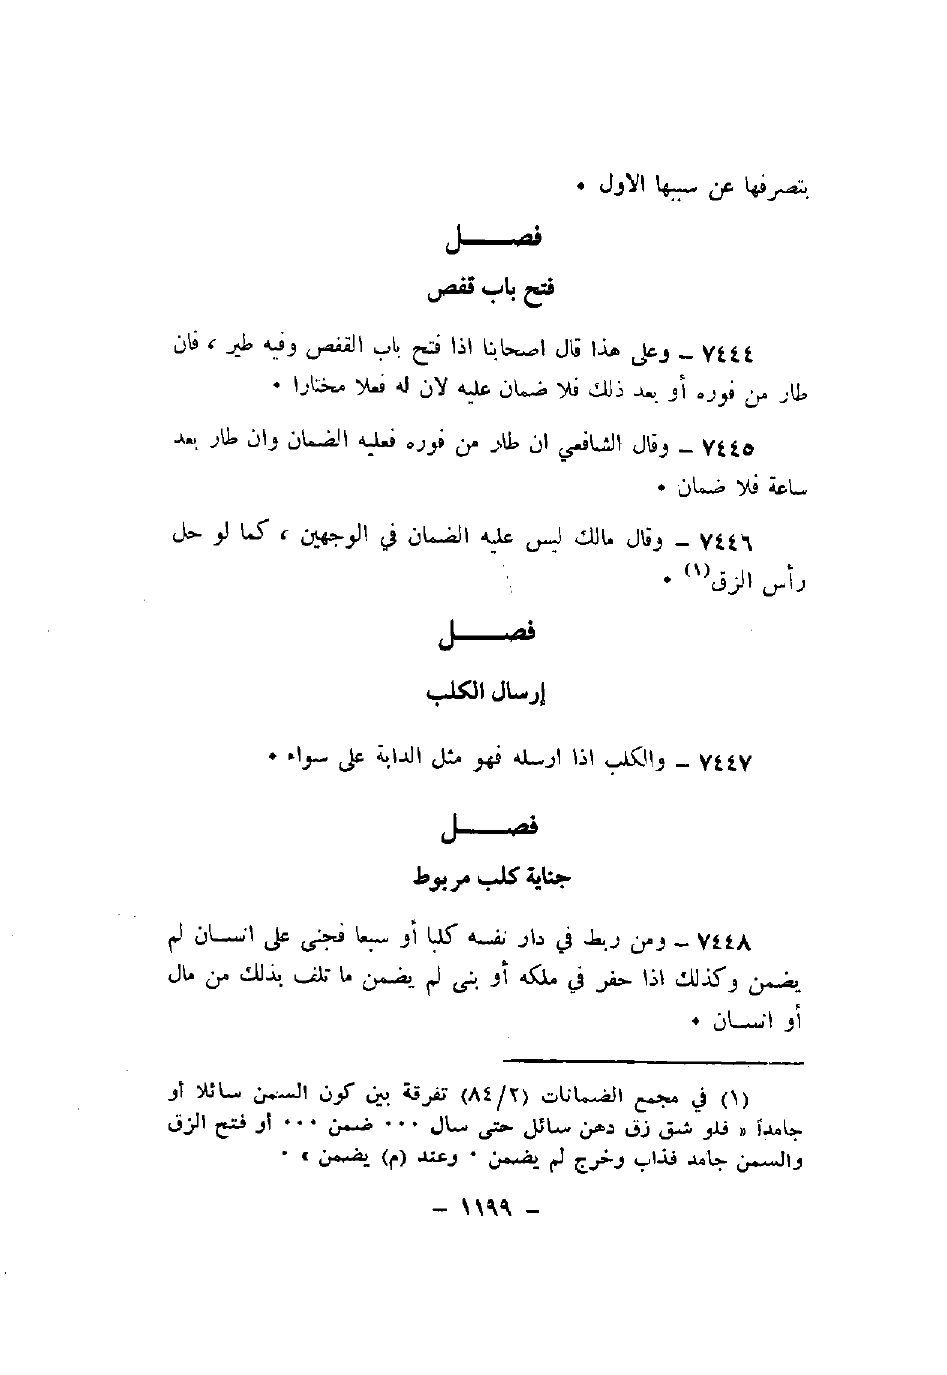 بتصرفها عن سببها الاول ٠
فصـــــل
فتح باب قفص
٧٤٤٤ ــ وعلى هذا قال اصحابنا اذا فتح باب القفص وفيه طير ، فان
طار من فوره أو بعد ذلك فلا ضمان عليه لان له فعلا مختارا ٠
٧٤٤٥ ــ وقال الشافعي ان طار من فوره فعليه الضمان وان طار بعد
ساعة فلا ضمان ٠
٧٤٤٦ ــ وقال مالك ليس عليه الضمان في الوجهين ، كما لو حل
رأس الزق(١) ٠
فصـــــل
إرسال الكلب
٧٤٤٧ ــ والكلب اذا ارسله فهو مثل الدابة على سواء ٠
فصـــــل
جناية كلب مربوط
٧٤٤٨ ــ ومن ربط في دار نفسه كلبا أو سبعا فجنى على انسان لم
يضمن وكذلك اذا حفر في ملكه أو بنى لم يضمن ما تلف بذلك من مال
أو انسان ٠
(١) في مجمع الضمانات (٨٤/٢) تفرقة بين كون السمن سائلا أو
جامداً « فلو شق زق دهن سائل حتى سال ٠٠٠ ضمن ٠٠٠ أو فتح الزق
والسمن جامد فذاب وخرج لم يضمن ٠ وعند (م) يضمن » ٠
ــ ١١٩٩ ــ